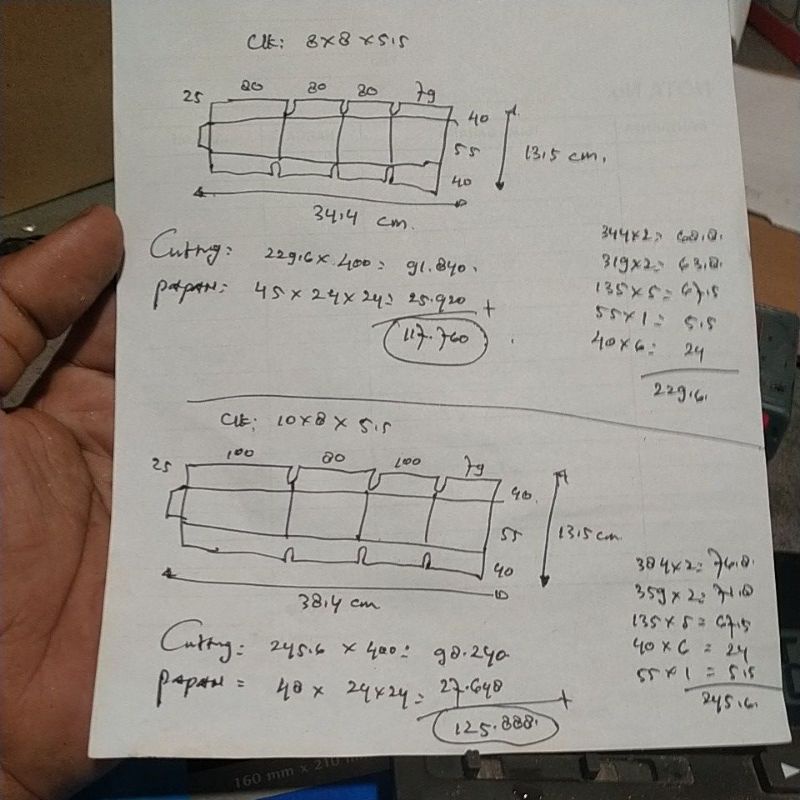 Uk: 8x8x5.5
25 80 80 80 79
40
55
40
13.5 cm.
34.4 cm.
Cutting: 229.6 x 400 = 91.840.
papan = 45 x 24 x 24 = 25.920 +
117.760
344x2= 68.8.
319x2= 63.8.
135x5= 67.5
55x1= 5.5
40x6= 24
229.6.
Uk: 10x8x5.5
25 100 80 100 79
40.
55
40
13.5 cm.
38.4 cm
Cutting = 245.6 x 400 = 98.240
papan = 48 x 24x24 = 27.648 +
125.888.
384x2= 76.8.
359x2= 71.8
135x5 = 67.5
40x6 = 24
55x1 = 5.5
245.6.
160 mm x 210 m